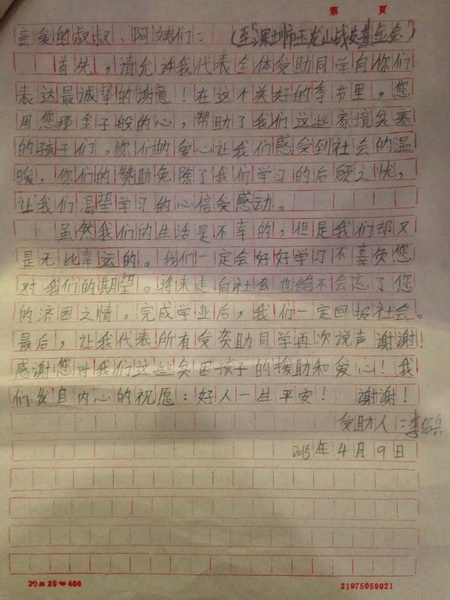 第 页
亲爱的叔叔、阿姨们：（至深圳市玉龙山战友基金会）
首先，请允许我代表全体受助同学向你们
表达最诚挚的谢意！在这个美好的季节里，您
用您那金子般的心，帮助了我们这些家境贫寒
的孩子们。你们的爱心让我们感受到社会的温
暖，你们的赞助免除了我们学习的后顾之忧，
让我们渴望学习的心倍受感动。
虽然我们的生活是不幸的，但是我们却又
是无比幸运的。我们一定会好好学习不辜负您
对我们的期望。将来走向社会也绝不会忘了您
的济困之情。完成学业后，我们一定回报社会。
最后，让我代表所有受资助同学再次说声谢谢！
感谢您对我们这些贫困孩子的援助和爱心！我
们发自内心的祝愿：好人一生平安！ 谢谢！
受助人：李
2015年4月9日
20×20=400 21975050021